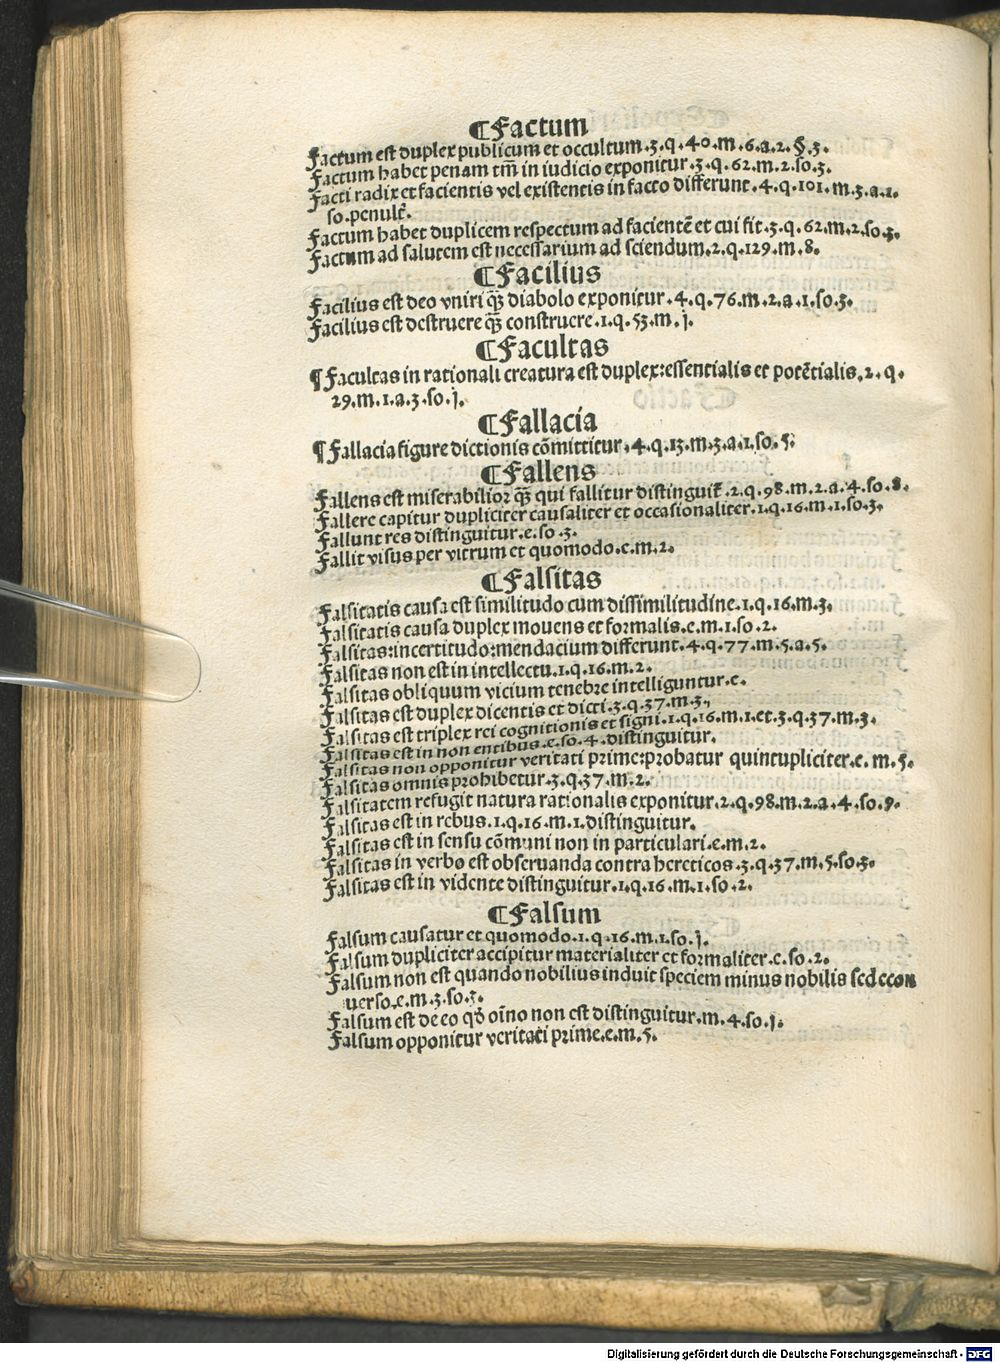 ¶Factum
Factum est duplex publicum et occultum.3.q.40.m.6.a.2.§.3.
Factum habet penam tm̄ in iudicio exponitur.3.q.62.m.2.so.3.
Facti radix et facientis vel existentis in facto differunt.4.q.101.m.3.a.1.
so.penult̄.
Factum habet duplicem respectum ad facientē et cui fit.3.q.62.m.2.so.3.
Factum ad salutem est necessarium ad sciendum.2.q.129.m.8.
¶Facilius
Facilius est deo vniri q̄ȝ diabolo exponitur.4.q.76.m.2.a.1.so.3.
Facilius est destruere q̄ȝ construere.1.q.53.m.j.
¶Facultas
¶Facultas in rationali creatura est duplex:essentialis et potētialis.2.q.
29.m.1.a.3.so.j.
¶Fallacia
¶Fallacia figure dictionis cōmittitur.4.q.13.m.3.a.1.so.5:
¶Fallens
Fallens est miserabilior q̄ȝ qui fallitur distinguit̄.2.q.98.m.2.a.4.so.8.
Fallere capitur dupliciter causaliter et occasionaliter.1.q.16.m.1.so.3.
Fallunt res distinguitur.e.so.3.
Fallit visus per vitrum et quomodo.e.m.2.
¶Falsitas
Falsitatis causa est similitudo cum dissimilitudine.1.q.16.m.3.
Falsitatis causa duplex mouens et formalis.e.m.1.so.2.
Falsitas:incertitudo:mendacium differunt.4.q.77.m.5.a.5.
Falsitas non est in intellectu.1.q.16.m.2.
Falsitas obliquum vicium tenebre intelliguntur.e.
Falsitas est duplex dicentis et dicti.3.q.37.m.3.
Falsitas est triplex rei cognitionis et signi.1.q.16.m.1.et.3.q.37.m.3.
Falsitas est in non entibus.e.so.4.distinguitur.
Falsitas non opponitur veritati prime:probatur quintupliciter.e.m.5.
Falsitas omnis prohibetur.3.q.37.m.2.
Falsitatem refugit natura rationalis exponitur.2.q.98.m.2.a.4.so.9.
Falsitas est in rebus.1.q.16.m.1.distinguitur.
Falsitas est in sensu cōmuni non in particulari.e.m.2.
Falsitas in verbo est obseruanda contra hereticos.3.q.37.m.5.so.3.
Falsitas est in vidente distinguitur.1.q.16.m.1.so.2.
¶Falsum
Falsum causatur et quomodo.1.q.16.m.1.so.j.
Falsum dupliciter accipitur materialiter et formaliter.e.so.2.
Falsum non est quando nobilius induit speciem minus nobilis sed econ
uerso.e.m.3.so.3.
Falsum est de eo qđ oīno non est distinguitur.m.4.so.j.
Falsum opponitur veritati prime.e.m.5.
Digitalisierung gefördert durch die Deutsche Forschungsgemeinschaft - DFG